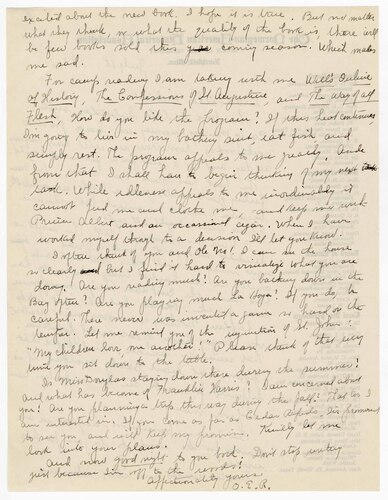 excited about the new book. I hope it is true. But no matter
what they think or what the quality of the book is, there will
be few books sold this coming season. Which makes
me sad.
For camp reading I am taking with me Wells's Outline
of History, The Confessions of St Augustine, and The Way of all
Flesh. How do you like the program? If this heat continues
I'm going to live in my bathing suit, eat fish and
simply rest. The program appeals to me greatly. Aside
from that I shall have to begin thinking of my next
book. While idleness appeals to me inordinately it
cannot feed me and clothe me, and keep me with
Prince Albert and an occasional cigar. When I have
worked myself through to a decision I'll let you know.
I often think of you and Ole Miss. I can see the house
so clearly but I find it hard to visualize what you are
doing. Are you reading much? Are you bathing down in the
Bay often? Are you playing much? If you do, be
careful. There never was invented a game so hard on the
temper. Let me remind you of the injunction of St. John:
"My children love one another!" Please think of this every
time you sit down to the table.
Is Miss Douglas staying down there during the summer?
And what has become of Franklin Harris? I am concerned about
you! Are you planning a trip this way during the fall? That too I
am interested in. If you come as far as Cedar Rapids, I've promised
to see you, and will keep my promise. Kindly let me
look into your plans.
And now good night to you both. Don't stop writing
just because I'm off to the woods!
Affectionately yours
O.E.R.